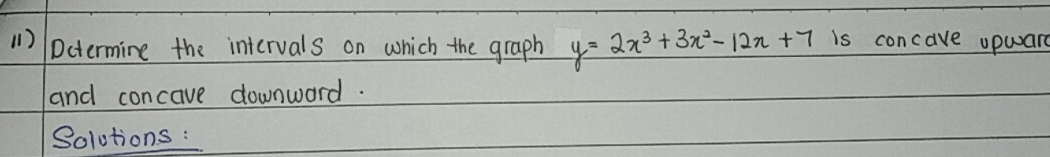 11) Determine the intervals on which the graph y = 2x³ + 3x² - 12x + 7 is concave upward
and concave downward.
Solutions: